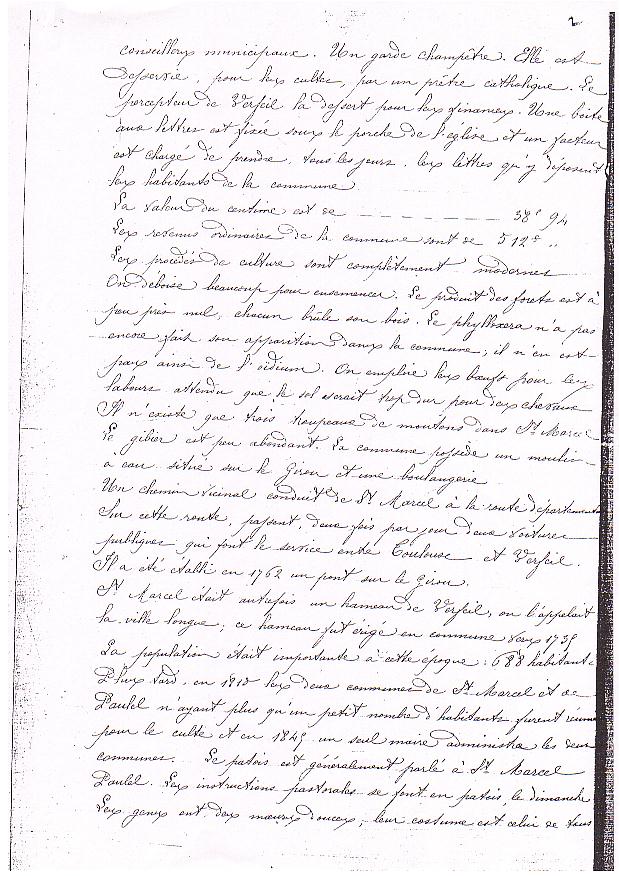 2
conseillers municipaux. Un garde champêtre. Elle est
desservie, pour les cultes, par un prêtre catholique. Le
percepteur de Verfeil la dessert pour les finances. Une boîte
aux lettres est fixée sous le porche de l'église et un facteur
est chargé de prendre, tous les jours, les lettres qu'y déposent
les habitants de la commune
La valeur du centime est de _ _ _ _ _ 38f 94
Les revenus ordinaires de la commune sont de 512f ..
Les procédés de culture sont complètement modernes
On déboise beaucoup pour ensemencer. Le produit des forets est à
peu près nul, chacun brûle son bois. Le phylloxera n'a pas
encore fait son apparition dans la commune; il n'en est
pas ainsi de l'oïdium. On emploie les bœufs pour les
labours attendu que le sol serait trop dur pour des chevaux
Il n'existe que trois troupeaux de moutons dans St Marcel
Le gibier est peu abondant. La commune possède un moulin
à eau situé sur le Girou et une boulangerie
Un chemin vicinal conduit de St Marcel à la route départementale
Sur cette route, passent, deux fois par jour deux voitures
publiques qui font le service entre Toulouse et Verfeil.
Il a été établi en 1762 un pont sur le Girou.
St Marcel était autrefois un hameau de Verfeil, on l'appelait
la ville longue; ce hameau fut érigé en commune vers 1739
La population était importante à cette époque: 688 habitants
Plus tard, en 1810 les deux communes de St Marcel et de
Paulel n'ayant plus qu'un petit nombre d'habitants furent réunies
pour le culte et en 1845 un seul maire administra les deux
communes. Le patois est généralement parlé à St Marcel
Paulel. Les instructions pastorales se font en patois le dimanche
Les gens ont des mœurs douces; leur costume est celui de tous